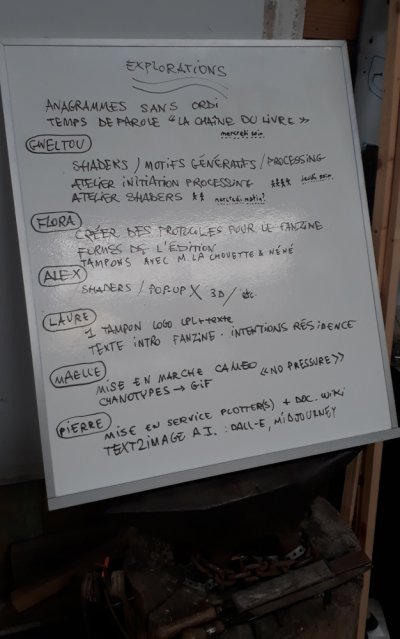 EXPLORATIONS
ANAGRAMMES SANS ORDI
TEMPS DE PAROLE "LA CHAÎNE DU LIVRE»
mercredi soir
GWELTOU
SHADERS / MOTIFS GÉNÉRATIFS / PROCESSING
ATELIER INITIATION PROCESSING **** jeudi soir
ATELIER SHADERS ** mercredi matin?
FLORA
CRÉER DES PROTOCOLES POUR LE FANZINE
FORMES DE L'ÉDITION
TAMPONS AVEC M. LA CHOUETTE & NÉNÉ
ALEX
SHADERS / POPUP X 3D / etc.
LAURE
1 TAMPON LOGO LPL + texte
TEXTE INTRO FANZINE - INTENTIONS RÉSIDENCE
MAELLE
MISE EN MARCHE CAMEO «NO PRESSURE»
CYANOTYPES → GIF
PIERRE
MISE EN SERVICE PLOTTER(S) + DOC. WIKI
TEXT2IMAGE A.I. : DALL-E, MIDJOURNEY